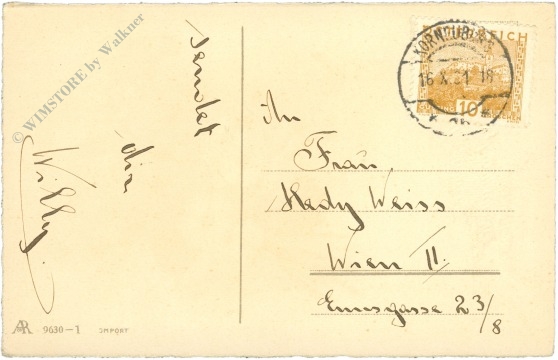 © WIMSTORE by Walkner
sendet
dir
Willy.
9630-1 IMPORT
KORNEUBURG
16.X.31 18
ÖSTERREICH
10
Frau
Hedy Weiss
Wien II.
Ennsgasse 23/8